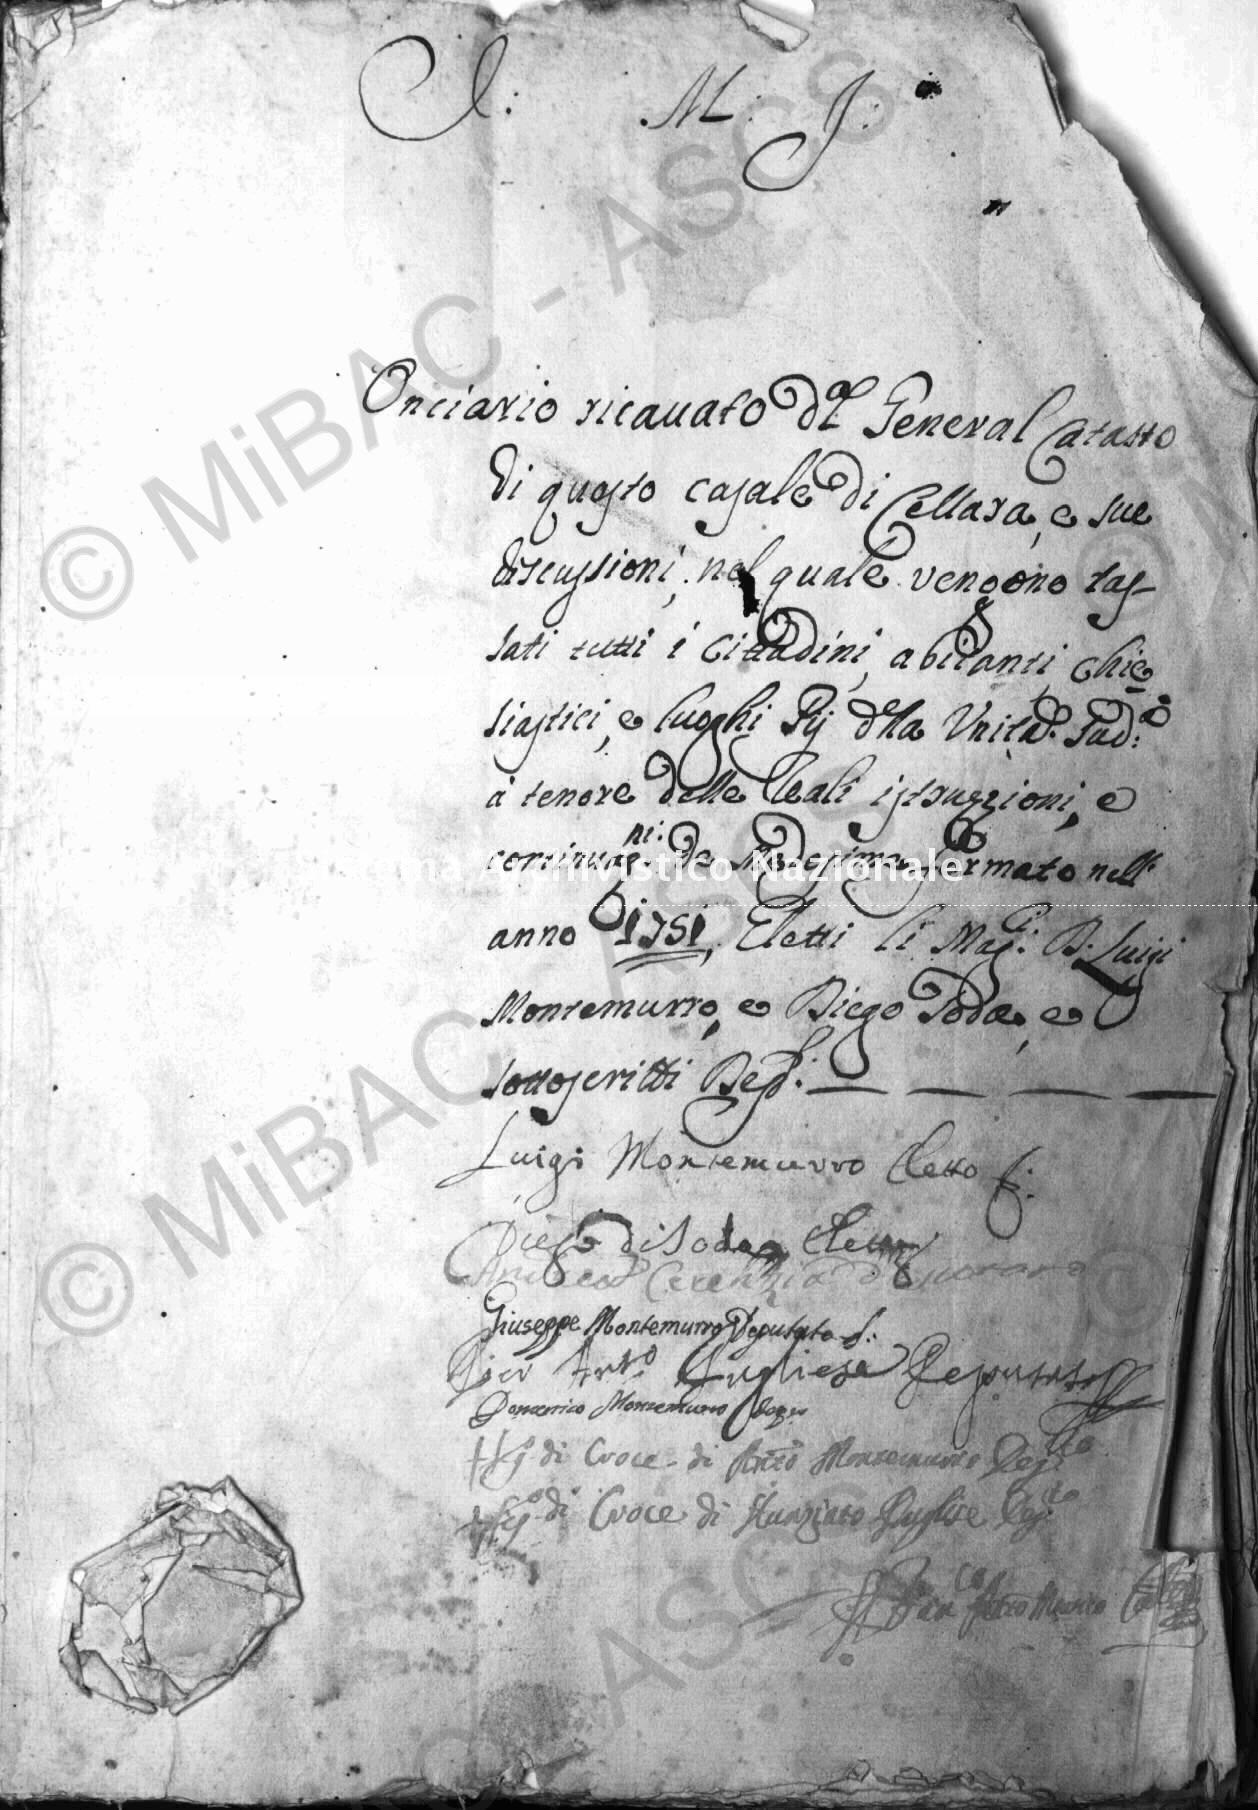 J: M: J:
Onciario ricavato d'l General Catasto
di questo casale di Cellara, e sue
discussioni, nel quale vengono tas-
sati tutti i Cittadini, abitanti, chie
siastici, e luoghi Pij d'lla Unita. Sud.a
a tenore delle Reali istruzzioni, e
continuaz.ni: de Medesima formato nell'
anno 1751, Eletti li Mag.i: D. Luigi
Montemurro, e Diego Soda, e
sottoscritti Dep.i:
Luigi Montemurro Eletto
Diego di Soda Eletto
Andrea Cerenzia
Giuseppe Montemurro Deputato
Pier Ant.o Pugliese Deputato
Domenico Montemurro
Sig.o di Croce di Ant.o Montemurro Dep.to
Sig.o di Croce di Nunziato Puglise Dep.to
© MiBAC - ASCS
© MiBAC - ASCS
Archivistico Nazionale